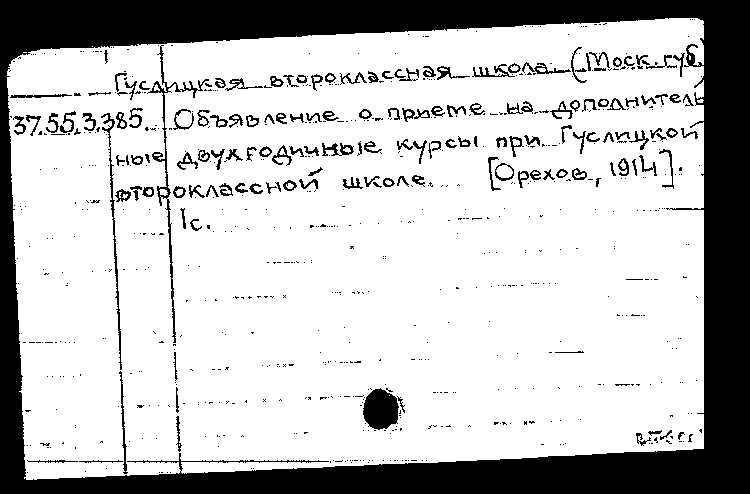 Гуслицкая второклассная школа. (Моск. губ.)
37.55.3.385. Объявление о приеме на дополнитель
ные двухгодичные курсы при Гуслицкой
второклассной школе. [Орехов, 1914].
1с.